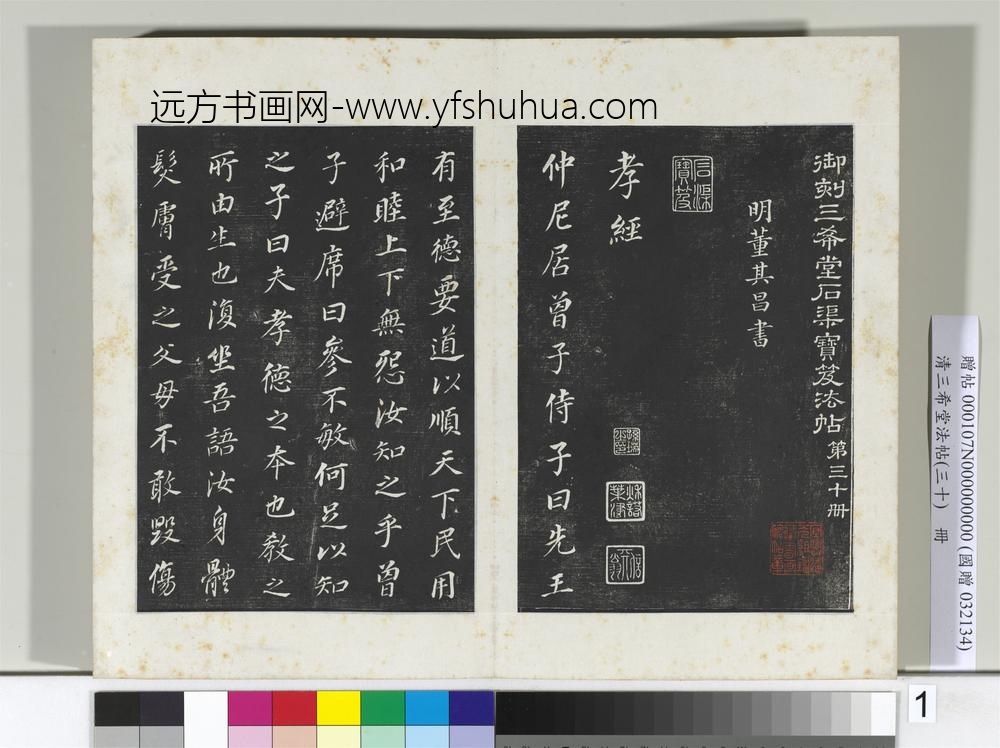 远方书画网-www.yfshuhua.com
御刻三希堂石渠寶笈法帖 第三十册
明董其昌書
石渠寶笈
孝經
仲尼居曾子侍子曰先王
有至德要道以順天下民用
和睦上下無怨汝知之乎曾
子避席曰參不敏何足以知
之子曰夫孝德之本也教之
所由生也復坐吾語汝身體
髮膚受之父母不敢毀傷
贈帖 000107N000000000 (國贈 032134)
清三希堂法帖(三十) 冊
1